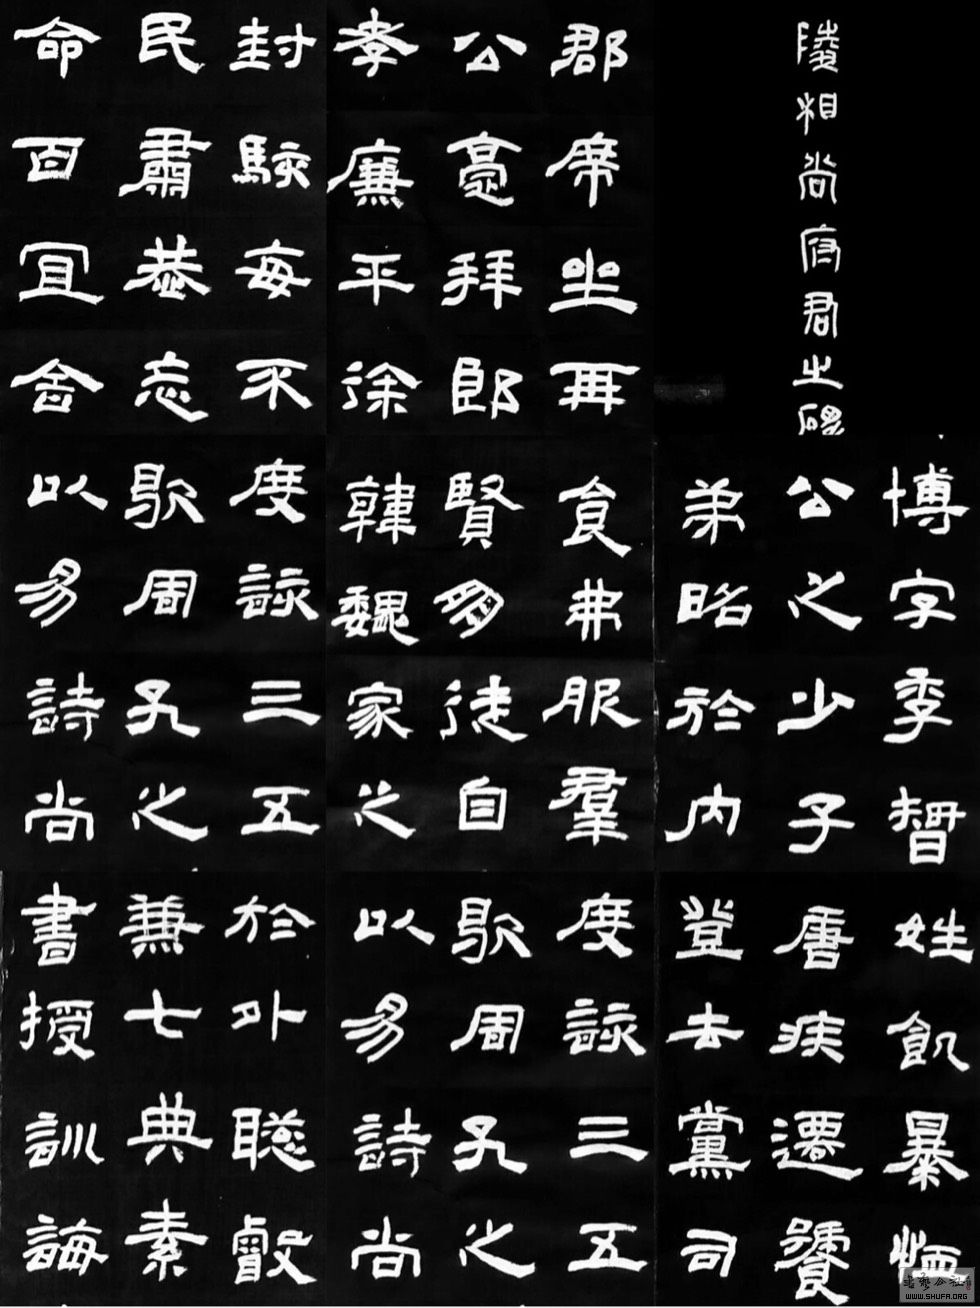 陵相尚府君之碑
郡席坐再
公拜郎
孝廉平徐
封駮每不
民肅恭忘
命百宜
博字季智
公之少子
弟略於內
食弗服羣
賢多徒自
韓魏家之
度詠三五
周孔之
以易詩尚
姓飢暴恤
唐疾遷
登去黨司
度詠三五
周孔之
以易詩尚
於外聰叡
兼七典素
書授訓誨
WWW.SHUFA.ORG